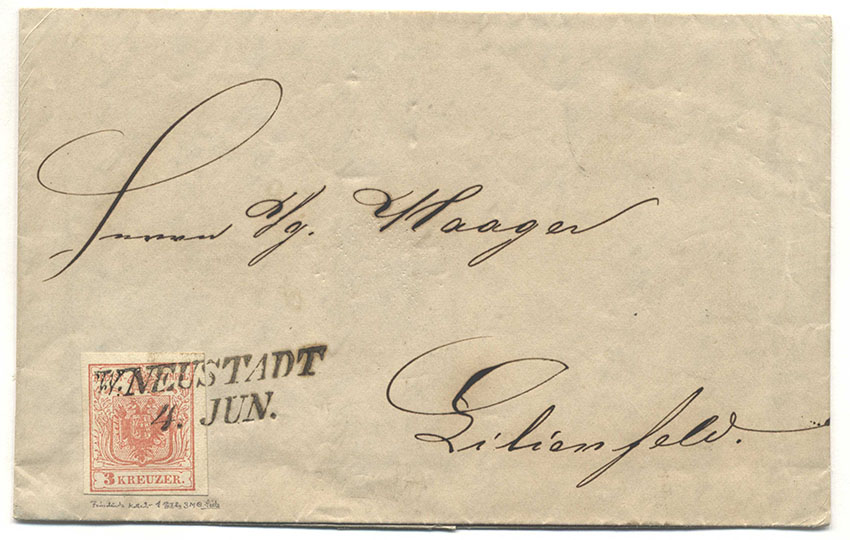 Herrn Ig. Haager
Lilienfeld.
W. NEUSTADT
4. JUN.
3 KREUZER.